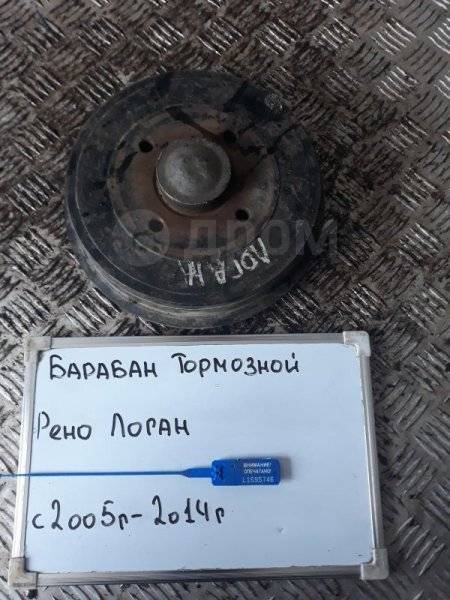 ДРОМ
ЛОГАН
БАРАБАН ТОРМОЗНОЙ
Рено Логан
ВНИМАНИЕ!
ОПЕЧАТАНО!
L1595746
с 2005г-2014г